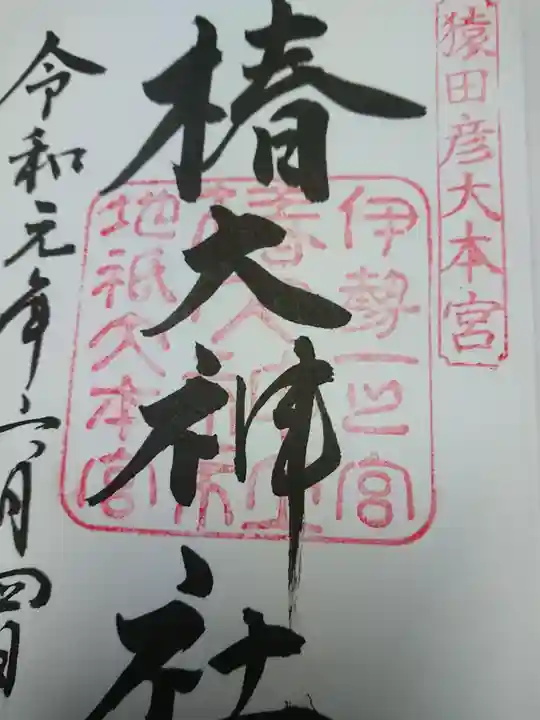 猿田彦大本宮
伊勢一之宮
椿大神社
地祇大本宮
椿大神社
令和元年六月四日